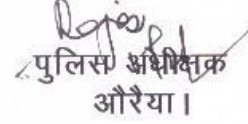 पुलिस अधीक्षक
औरैया।